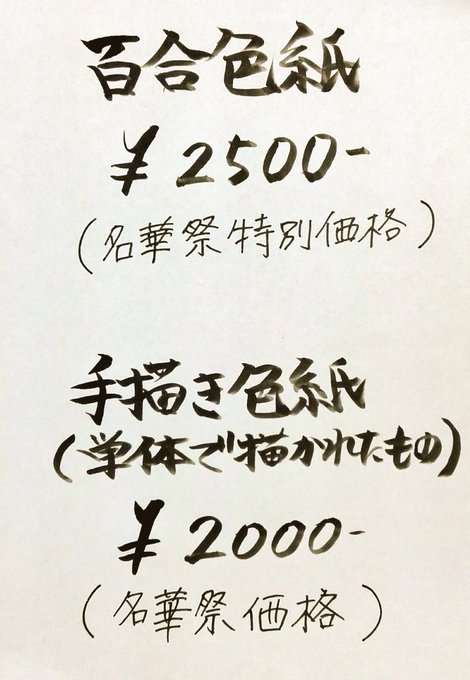 百合色紙
¥2500-
(名華祭特別価格)
手描き色紙
(単体で描かれたもの)
¥2000-
(名華祭価格)